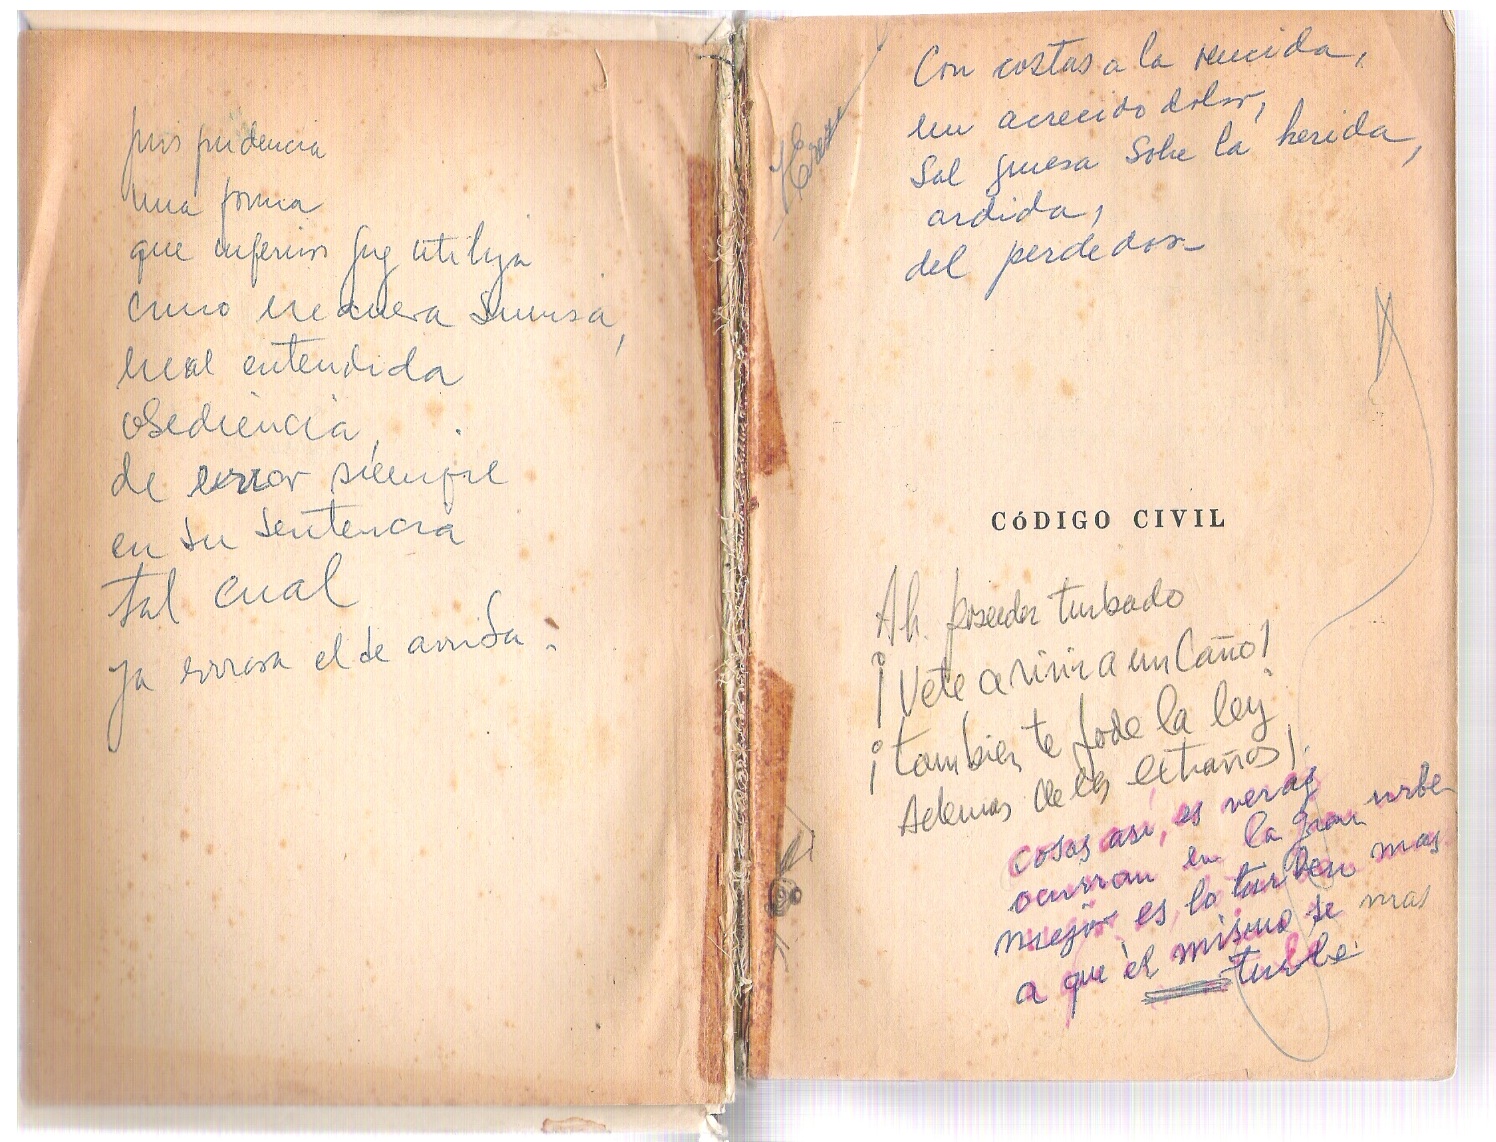 jurisprudencia
una forma
que inferior juz utiliza
como manera sumisa,
mal entendida
obediencia,
de error siempre
en su sentencia
tal cual
ya errosa el de arriba.
Con costas a la vencida,
un acrecido dolor,
Sal gruesa sobre la herida,
ardida,
del perdedor
CÓDIGO CIVIL
Ah. poseedor turbado
¡Vete a vivir a un Caño!
¡tambien te jode la ley
Ademas de los extraños!
cosas así, es veraz
ocurran en la gran urbe
mejor es lo turben mas
a que él mismo se mas
turbe.